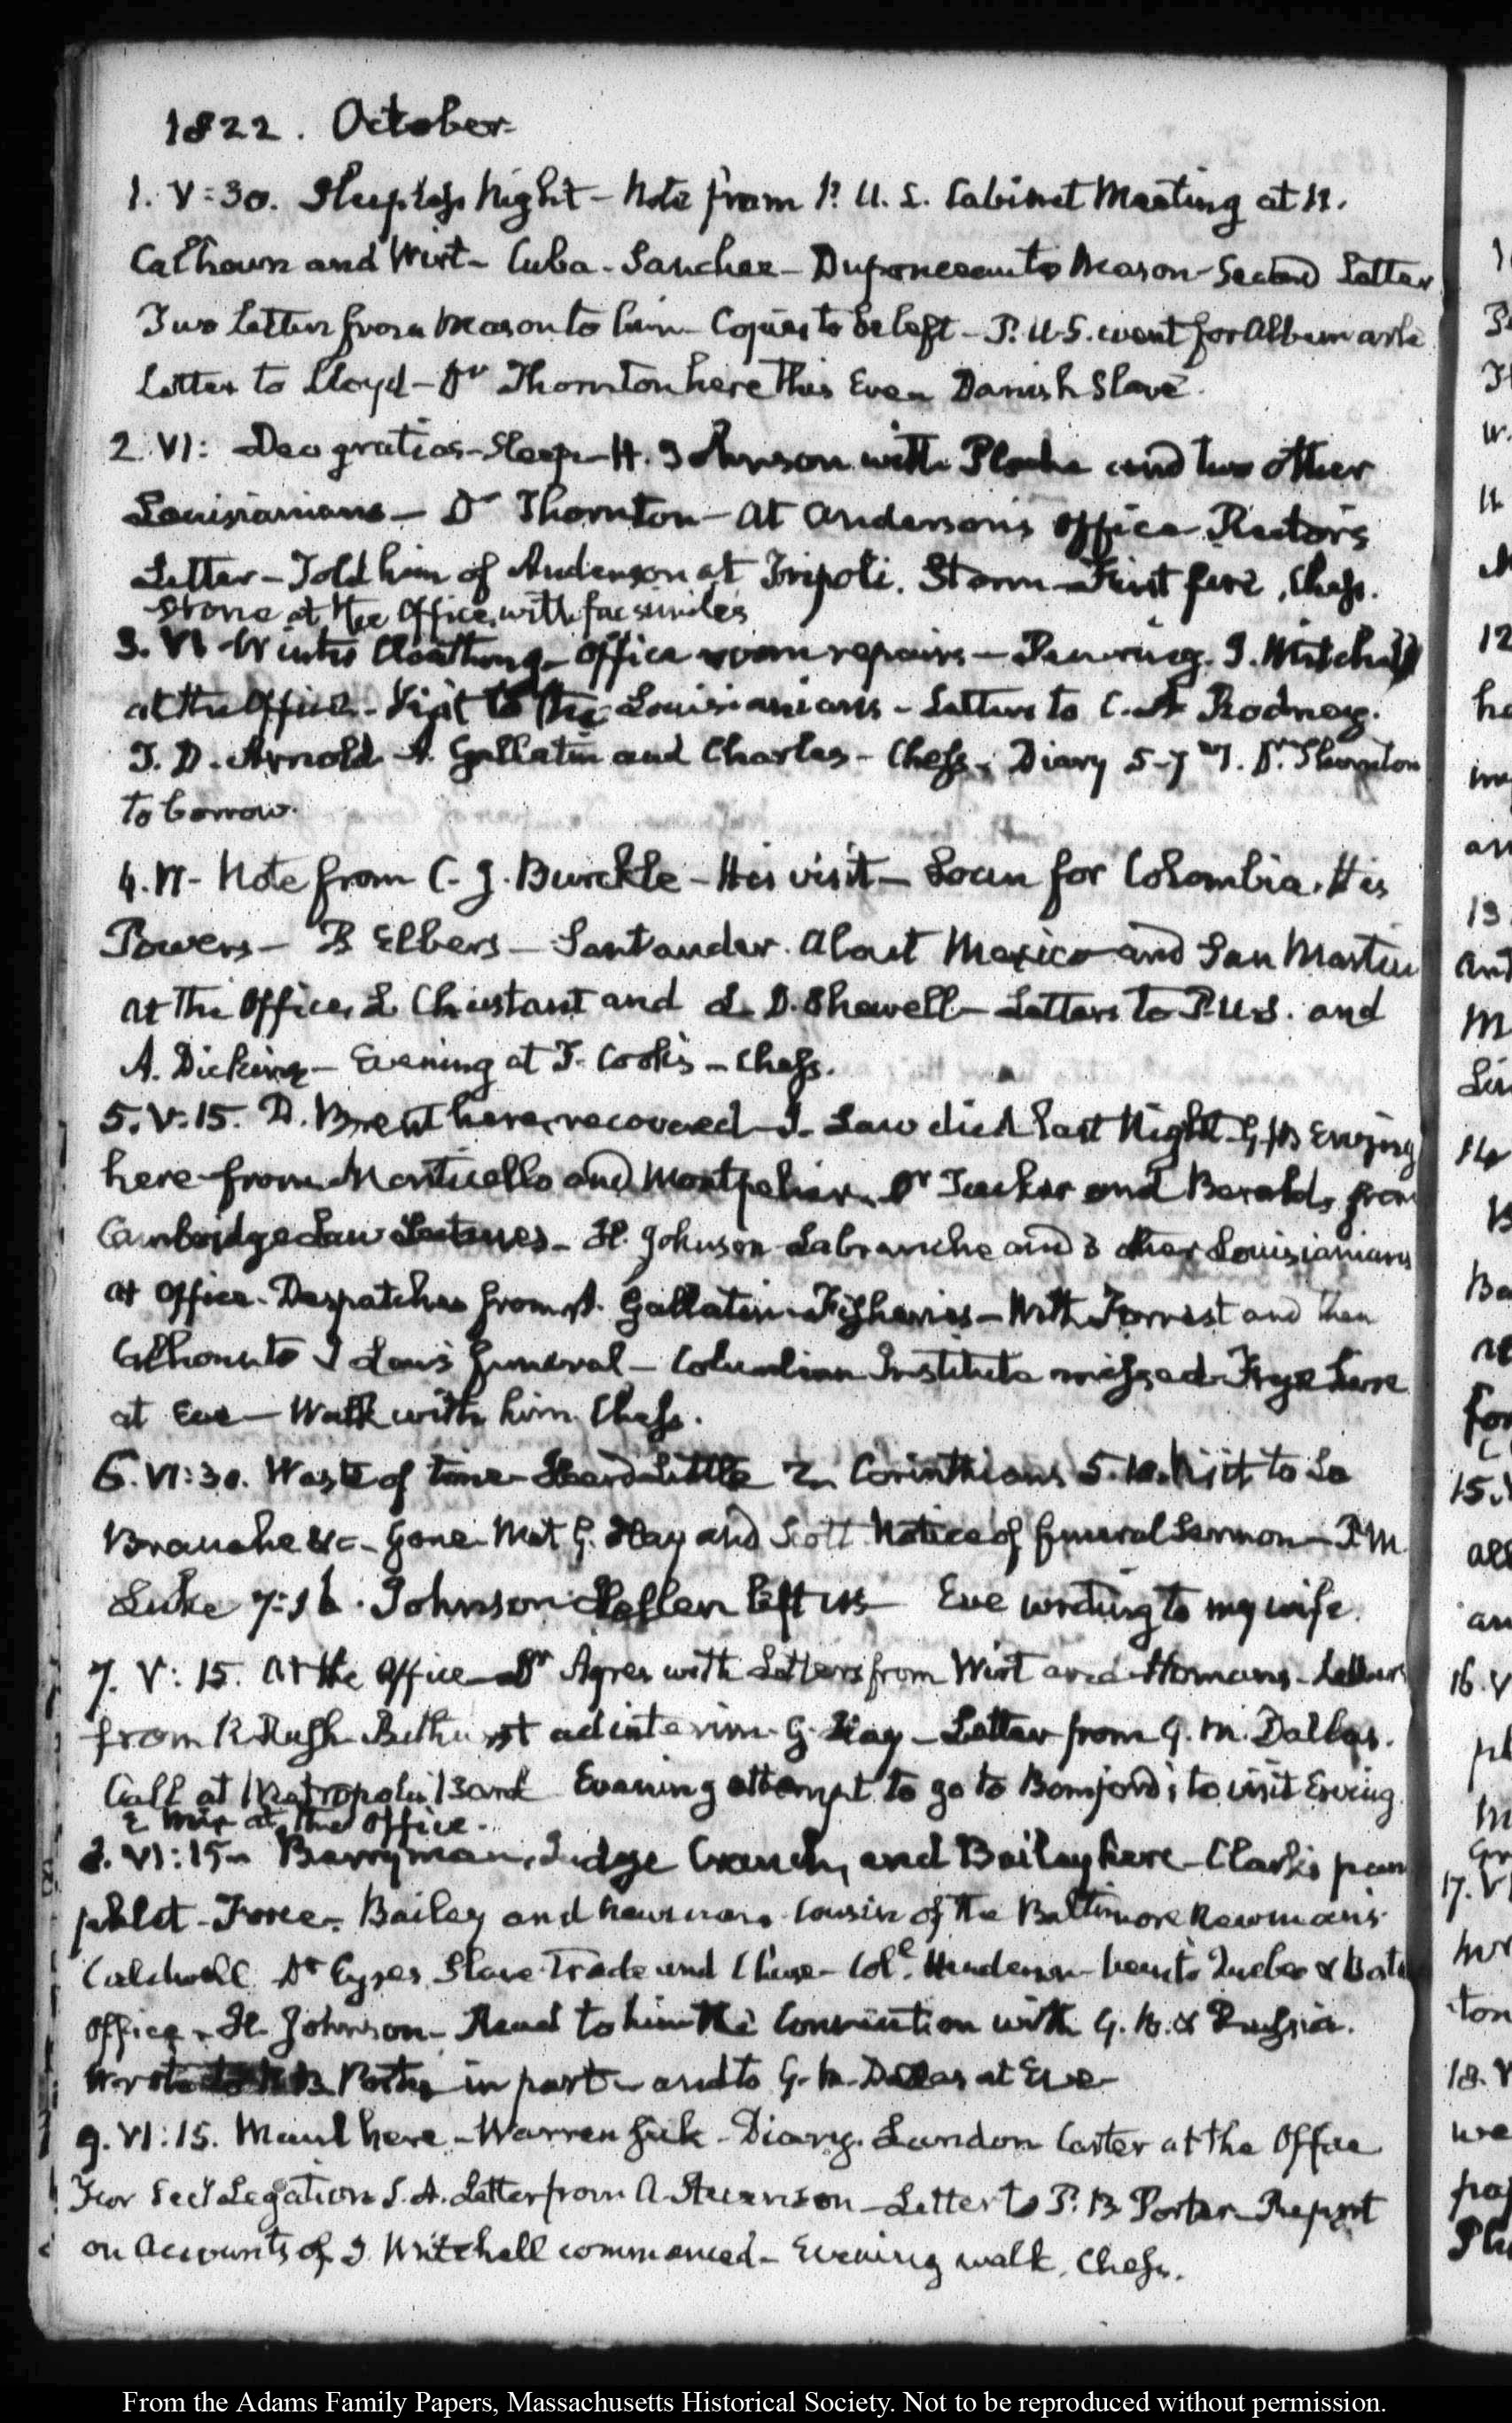 1822. October.
1. V:30. Sleepless Night - Note from P. U. S. Cabinet Meeting at 11.
Calhoun and Wirt - Cuba - Sanchez - Duponceau to Mason - Second Letter
Two Letters from Mason to him - Copies to be left - P. U.S. went for Albemarle
Letter to Lloyd - Dr Thornton here this Eve - Danish Slave.
2. VI: Deo gratias - Sleep - H. Johnson with Plauche and two other
Louisianians - Dr Thornton - At Anderson's Office Rector's
Letter - Told him of Anderson at Tripoli. Storm - First fire, Chess.
Stone at the Office with fac similes
3. VI Winter Cloathing - Office room repairs - Penning. T. Mitchell
at the Office - Visit to the Louisianians - Letters to C. A. Rodney.
T. D. Arnold A. Gallatin and Charles - Chess. Diary Dr. Thornton
to borrow.
4. VI - Note from C. J. Burckle - His visit - Loan for Colombia. His
Powers - B Elbers - Santander. About Mexico and San Martin
At the Office, L Chustant and L. D. Shewell - Letters to P.U.S. and
A. Dickins - Evening at T. Cook's - Chess.
5. V:15. D. Brent here, recovered - J. Law died last Night - G. W Erving
here from Monticello and Montpelier. Dr Tucker and from
Cambridge Law Lectures - H. Johnson Labranche and 3 other Louisianians
at Office - Despatches from A. Gallatin - Fisheries - With Forrest and then
Calhoun to J Law's funeral - Columbian Institute missed - Frye here
at Eve - Walk with him. Chess.
6. VI:30. Waste of time - Heard Little 2. Corinthians 5. 10. Visit to La
Branche &c - gone. Met G. Hay and Scott Notice of funeral Sermon - P.M.
Luke 7: Johnson Hellen left us Eve writing to my wife.
7. V: 15. At the Office - Dr Ayres with Letters from Wirt and Homans - Letters
from R Rush Bathurst ad interim - G. Hay - Letter from G. M. Dallas.
Call at Metropolis Bank Evening attempt to go to Bomford's to visit Erving
E Mix at the Office.
8. VI:15 - Berryman, Judge Cranch, and Bailey here - Clark's pam
phlet - Force. Bailey and Newman. Cousin of the Baltimore Newmans
Caldwell Dr Eyres Slave Trade and Col. Henderson - been to Quebec &
Office - H. Johnson - Read to him the Convention with G. B. & Russia.
Wrote Porter in part - and to G. M. Dallas at Eve -
9. VI:15. Maul here - Warren sick - Diary. Landon Carter at the Office
For Secy Legation S. A. Letter from A Stevenson - Letter to P. B. Porter - Report
on Accounts of T. Mitchell commenced - Evening walk, Chess.
From the Adams Family Papers, Massachusetts Historical Society. Not to be reproduced without permission.